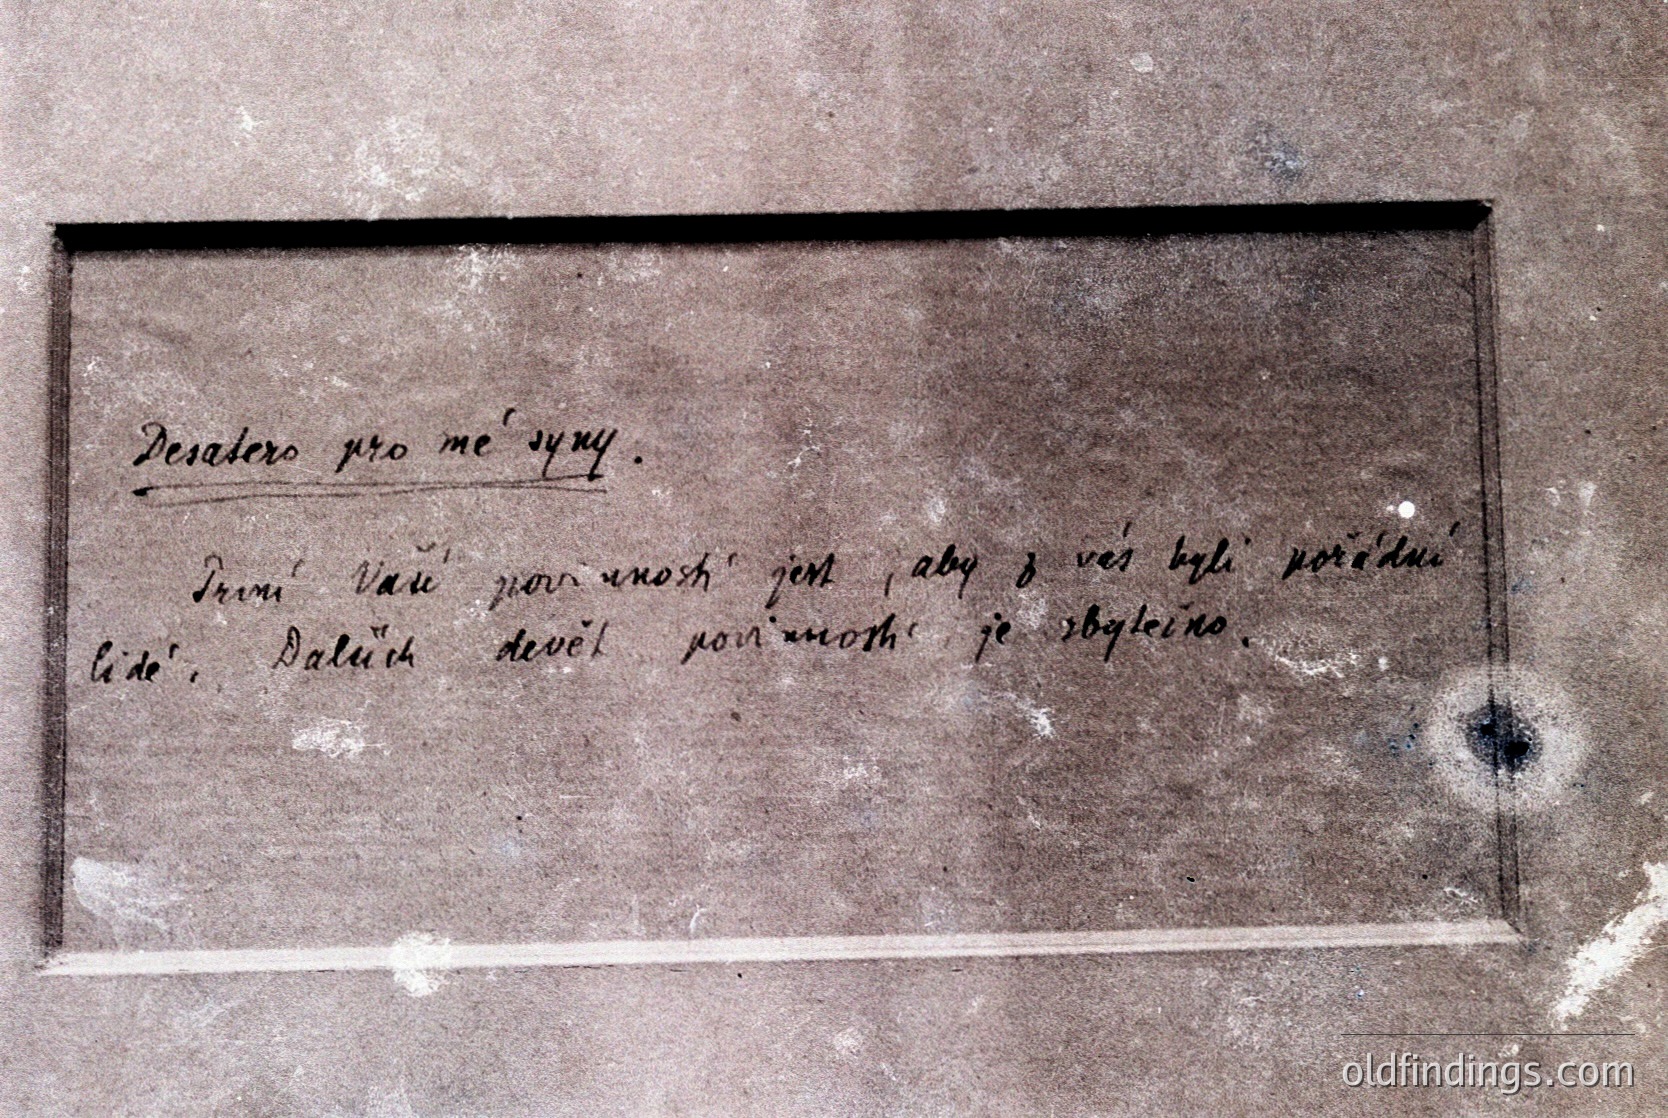 Desatero pro mé syny.
První Vaší povinností jest, aby z vás byli pořádní
lidé. Dalších devět povinností je zbytečno.
oldfindings.com